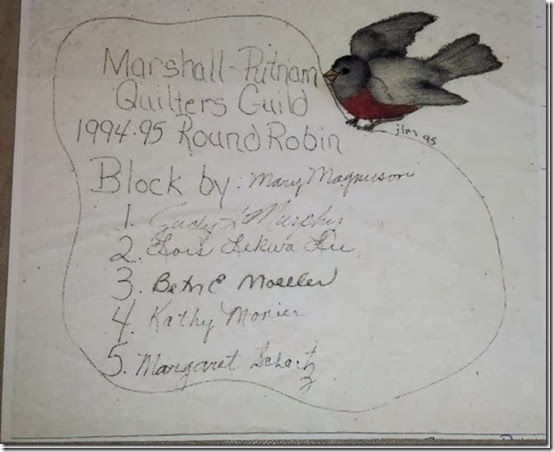 Marshall-Putnam
Quilters Guild
1994-95 Round Robin
jlm 95
Block by: Mary Magnuson
1. Judy L Murphy
2. Lois Lekwa
3. Beth E Moeller
4. Kathy Monier
5. Margaret